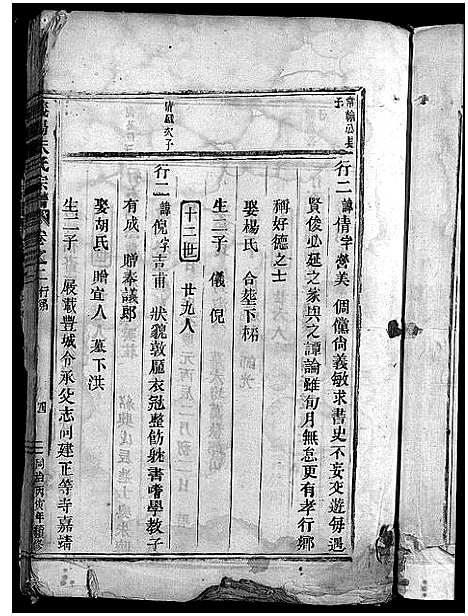 行二 諱倩字譽美 倜儻尙義敏求書史不妄交遊每遇
賢俊必延之家與之譚論雖旬月無怠更有孝行鄉
稱好德之士
娶楊氏 合塟下梘
生二子 儀 倪
十二世 廿九人
行二 諱倪字吉甫 狀貌敦龐衣冠整飭躭書嗜學教子
有成 贈奉議郎
娶胡氏 贈宜人 墓下洪
生二子 晸載豐城令承父志同建正等寺嘉靖
朱氏宗譜 卷之二 行第 四 同治丙寅年續修